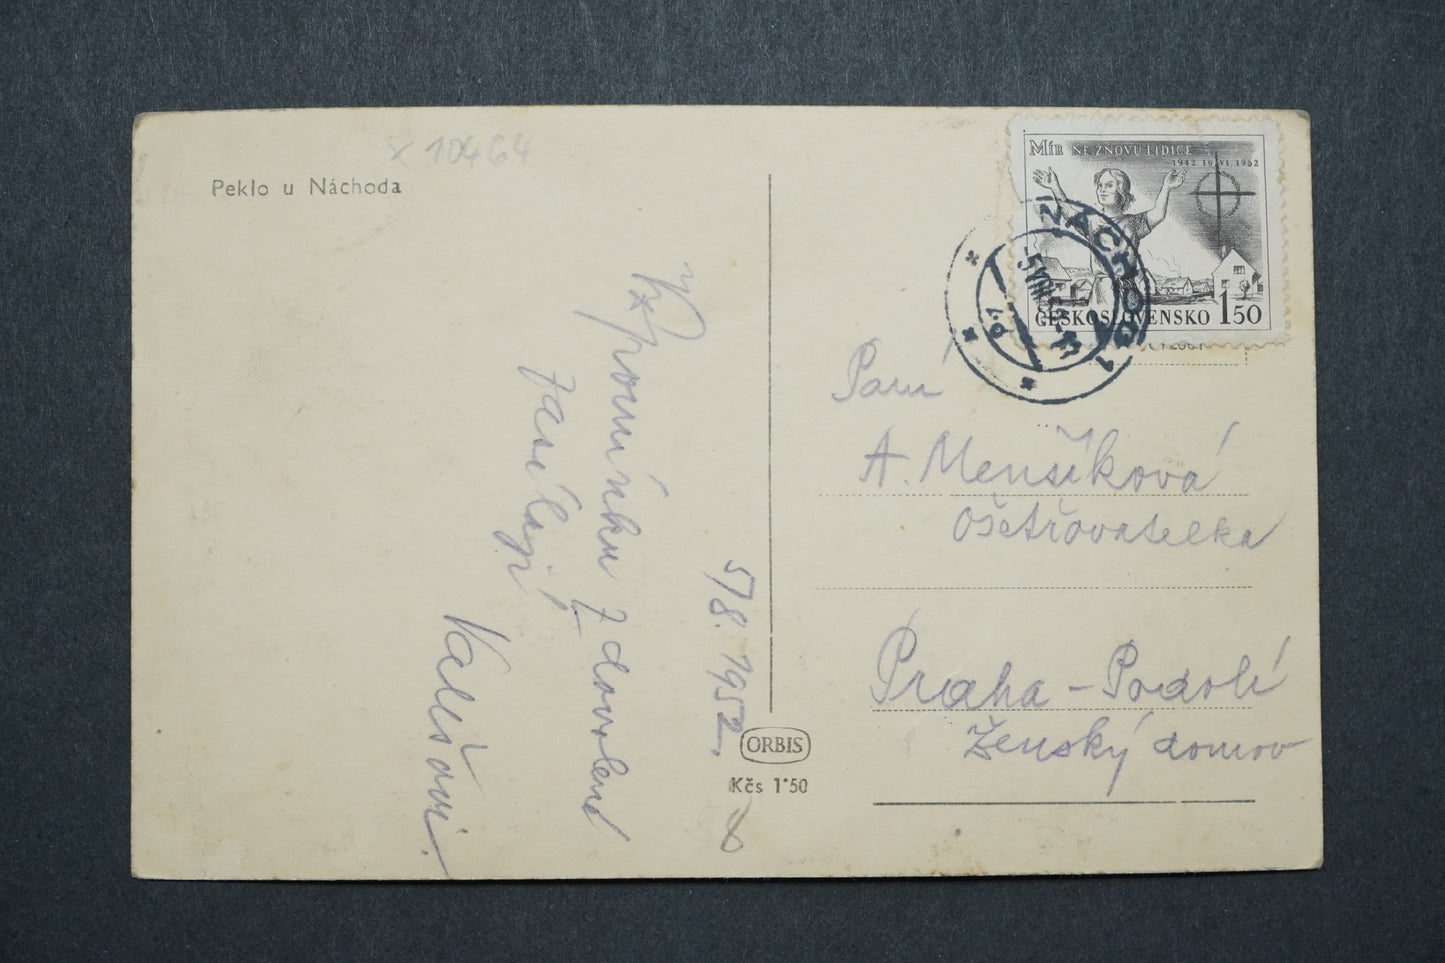 x 10464
Peklo u Náchoda
5/8. 1952.
Vzpomínku z dovolené
zasílají
Valešovi.
ORBIS
Kčs 1·50
MÍR NE ZNOVU LIDICE
1942 10.VI.1952
ČESKOSLOVENSKO 1 50
NÁCHOD 1
Paní
A. Menšíková
Ošetřovatelka
Praha - Podolí
Ženský domov